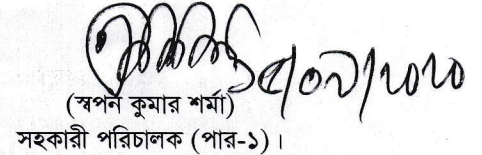 ১৫/০৯/২০২০
(স্বপন কুমার শর্মা)
সহকারী পরিচালক (পার-১)।